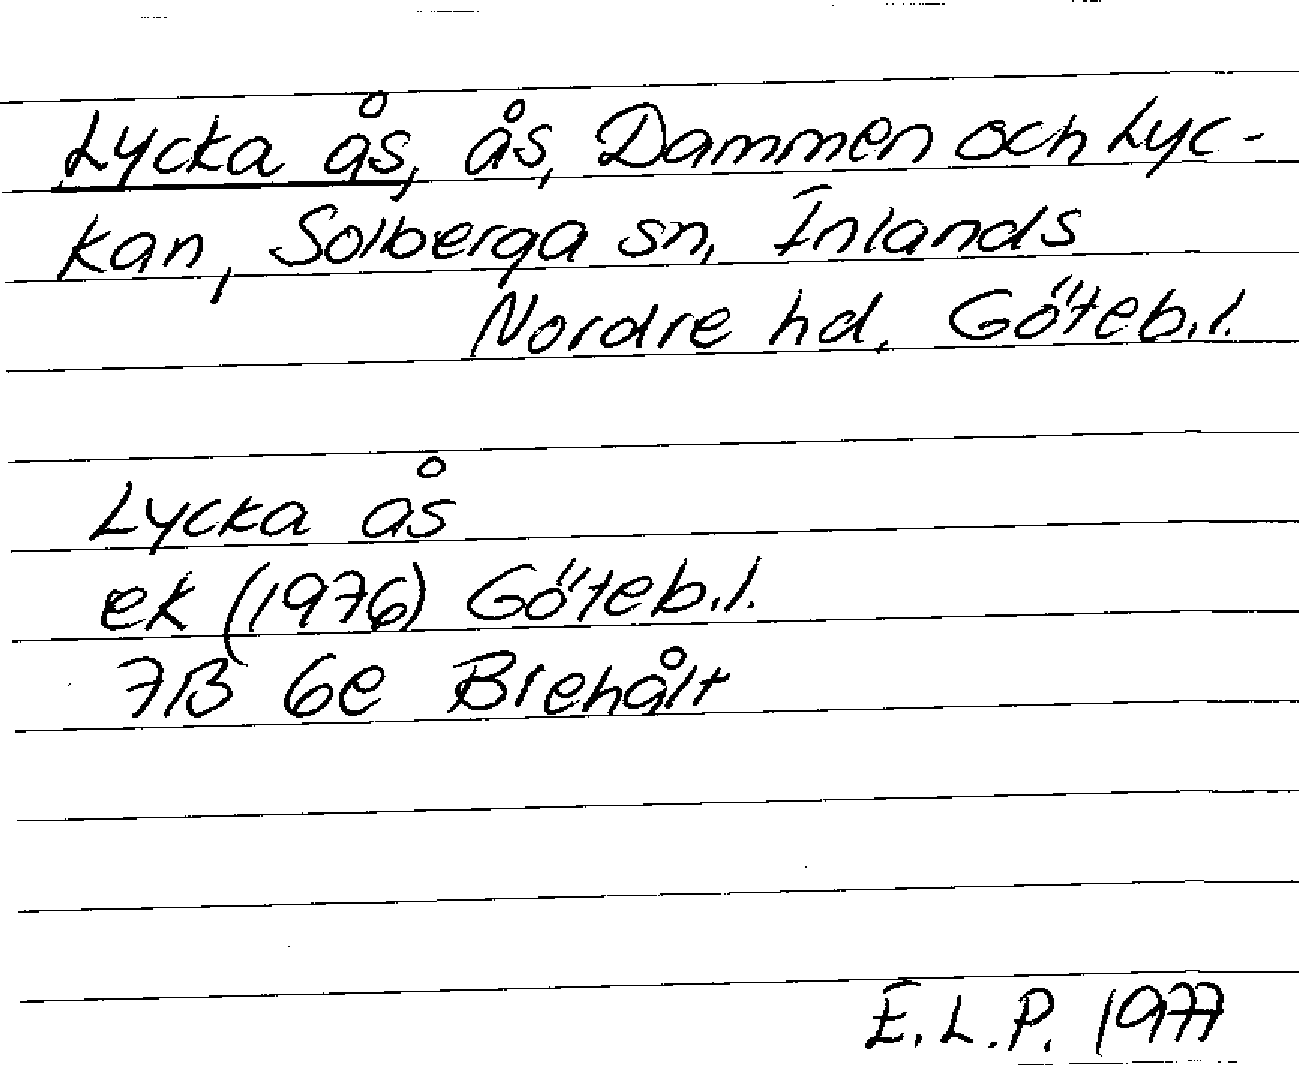 Lycka ås, ås, Dammen och Lyc-
kan, Solberga sn, Inlands
Nordre hd, Göteb.l.
Lycka ås
ek (1976) Göteb.l.
7B 6e Brehålt
E.L.P. 1977